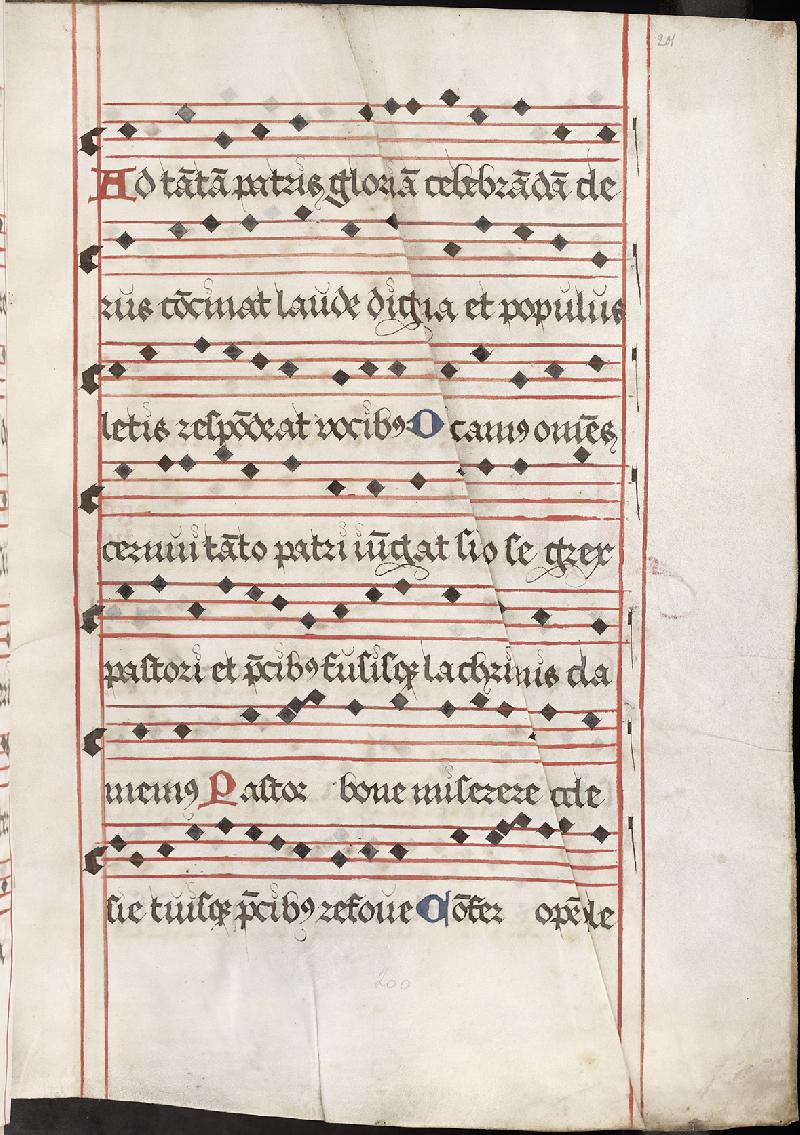 201
Ad tātā patris gloriā celebrādā cle
rus cōcinat laude digna et populus
letis respōdeat vocibꝰ O canꝰ omēs
cernui tāto patri iūgat sio se grex
pastori et p̄cibꝰ fusisqꝫ lachrimis cla
memꝰ Pastor bone miserere ecle
sie tuisqꝫ p̄cibꝰ refoue Cōfer opē le
200